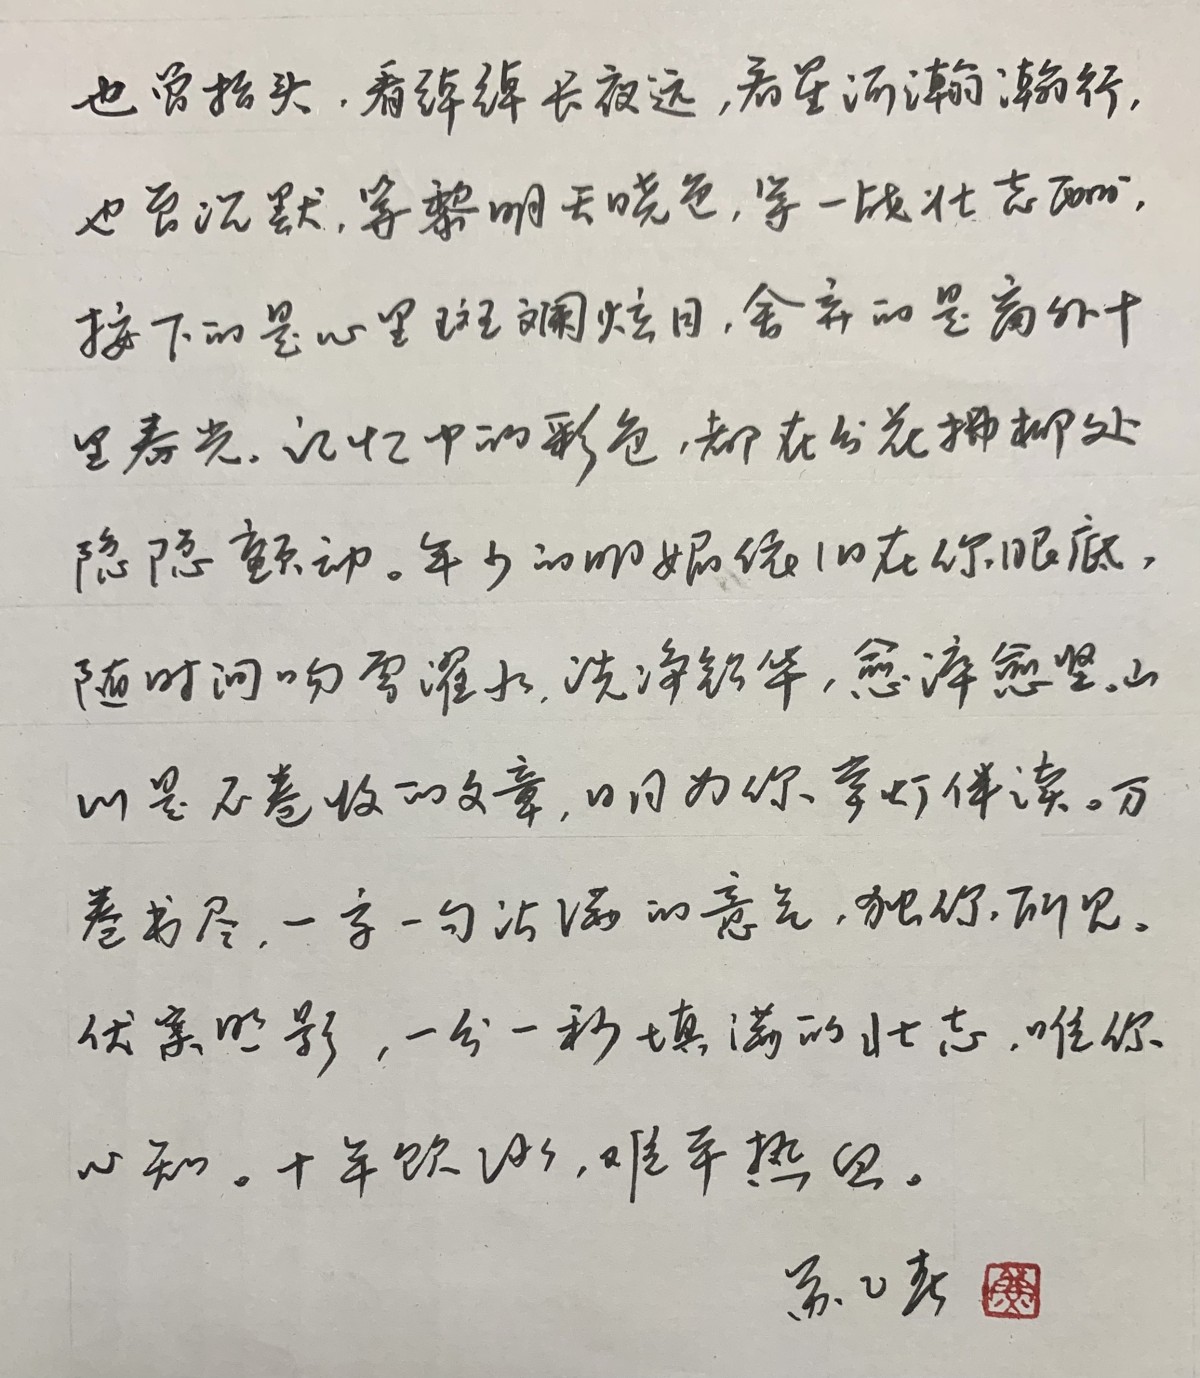 也曾抬头，看绰绰长夜远，看星河瀚瀚行，
也曾沉默，等黎明天晓色，等一战壮志酬，
接下的是心里斑斓炫目，舍弃的是窗外十
里春光。记忆中的彩色，都在分花拂柳处
隐隐颤动。年少的明媚依旧在你眼底，
随时间吻雪濯水，洗净铅华，愈淬愈坚。山
川是不卷收的文章，日月为你掌灯伴读。万
卷书尽，一字一句沾满的意气，独你所见。
伏案照影，一分一秒填满的壮志，唯你
心知。十年饮冰，难平热血。